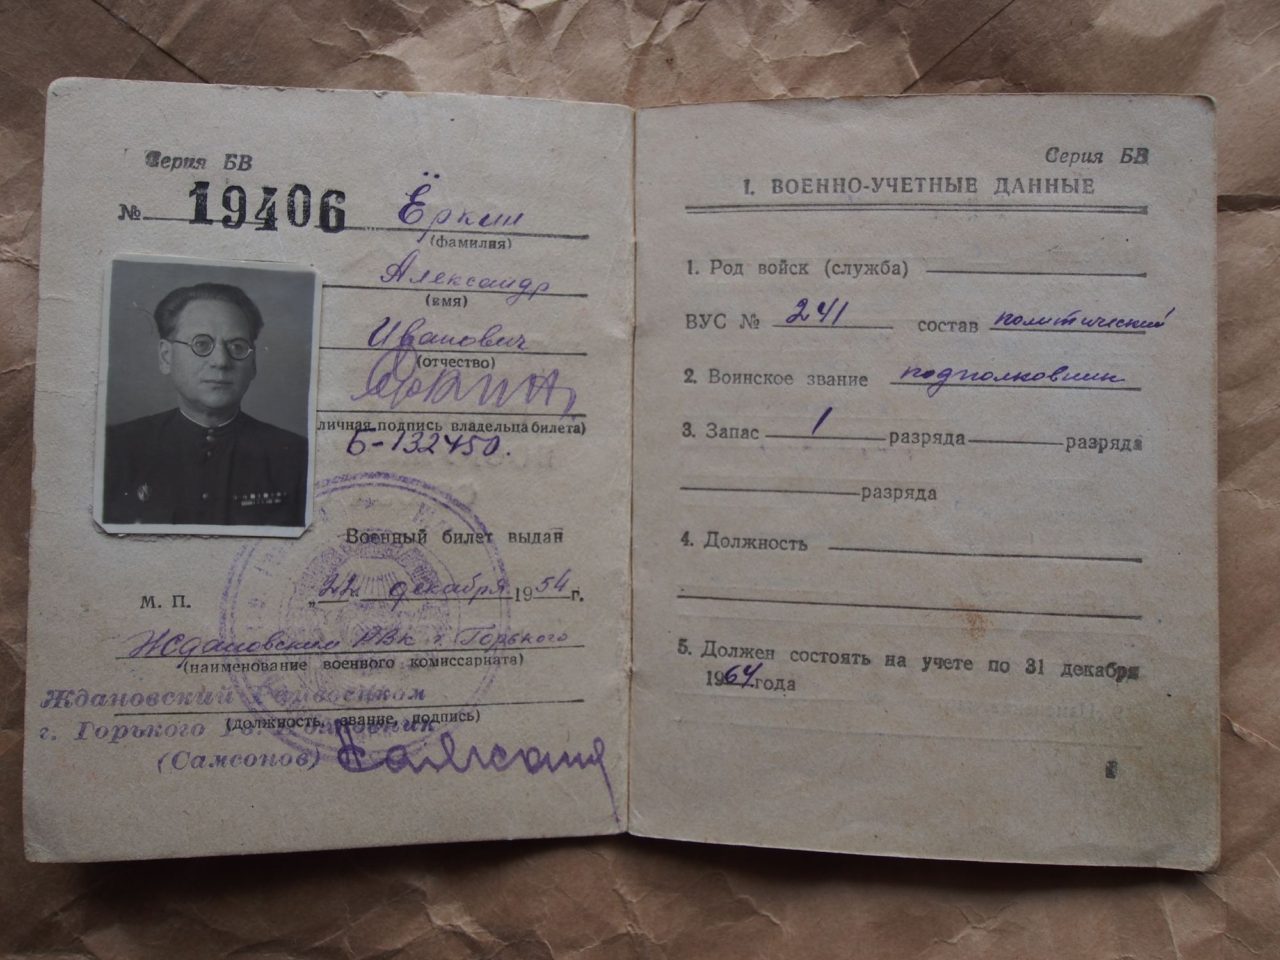 Серия БВ
№ 19406
Ёркин
(фамилия)
Александр
(имя)
Иванович
(отчество)
Ёркин
(личная подпись владельца билета)
Б-132450.
Военный билет выдан
М. П.
„22“ декабря 1954 г.
Ждановским РВК г. Горького
(наименование военного комиссариата)
Ждановский Райвоенком
(должность, звание, подпись)
г. Горького
(Самсонов)
Серия БВ
I. ВОЕННО-УЧЕТНЫЕ ДАННЫЕ
1. Род войск (служба)
ВУС № 241 состав политический
2. Воинское звание подполковник
3. Запас 1 разряда разряда
разряда
4. Должность
5. Должен состоять на учете по 31 декабря
1964 года